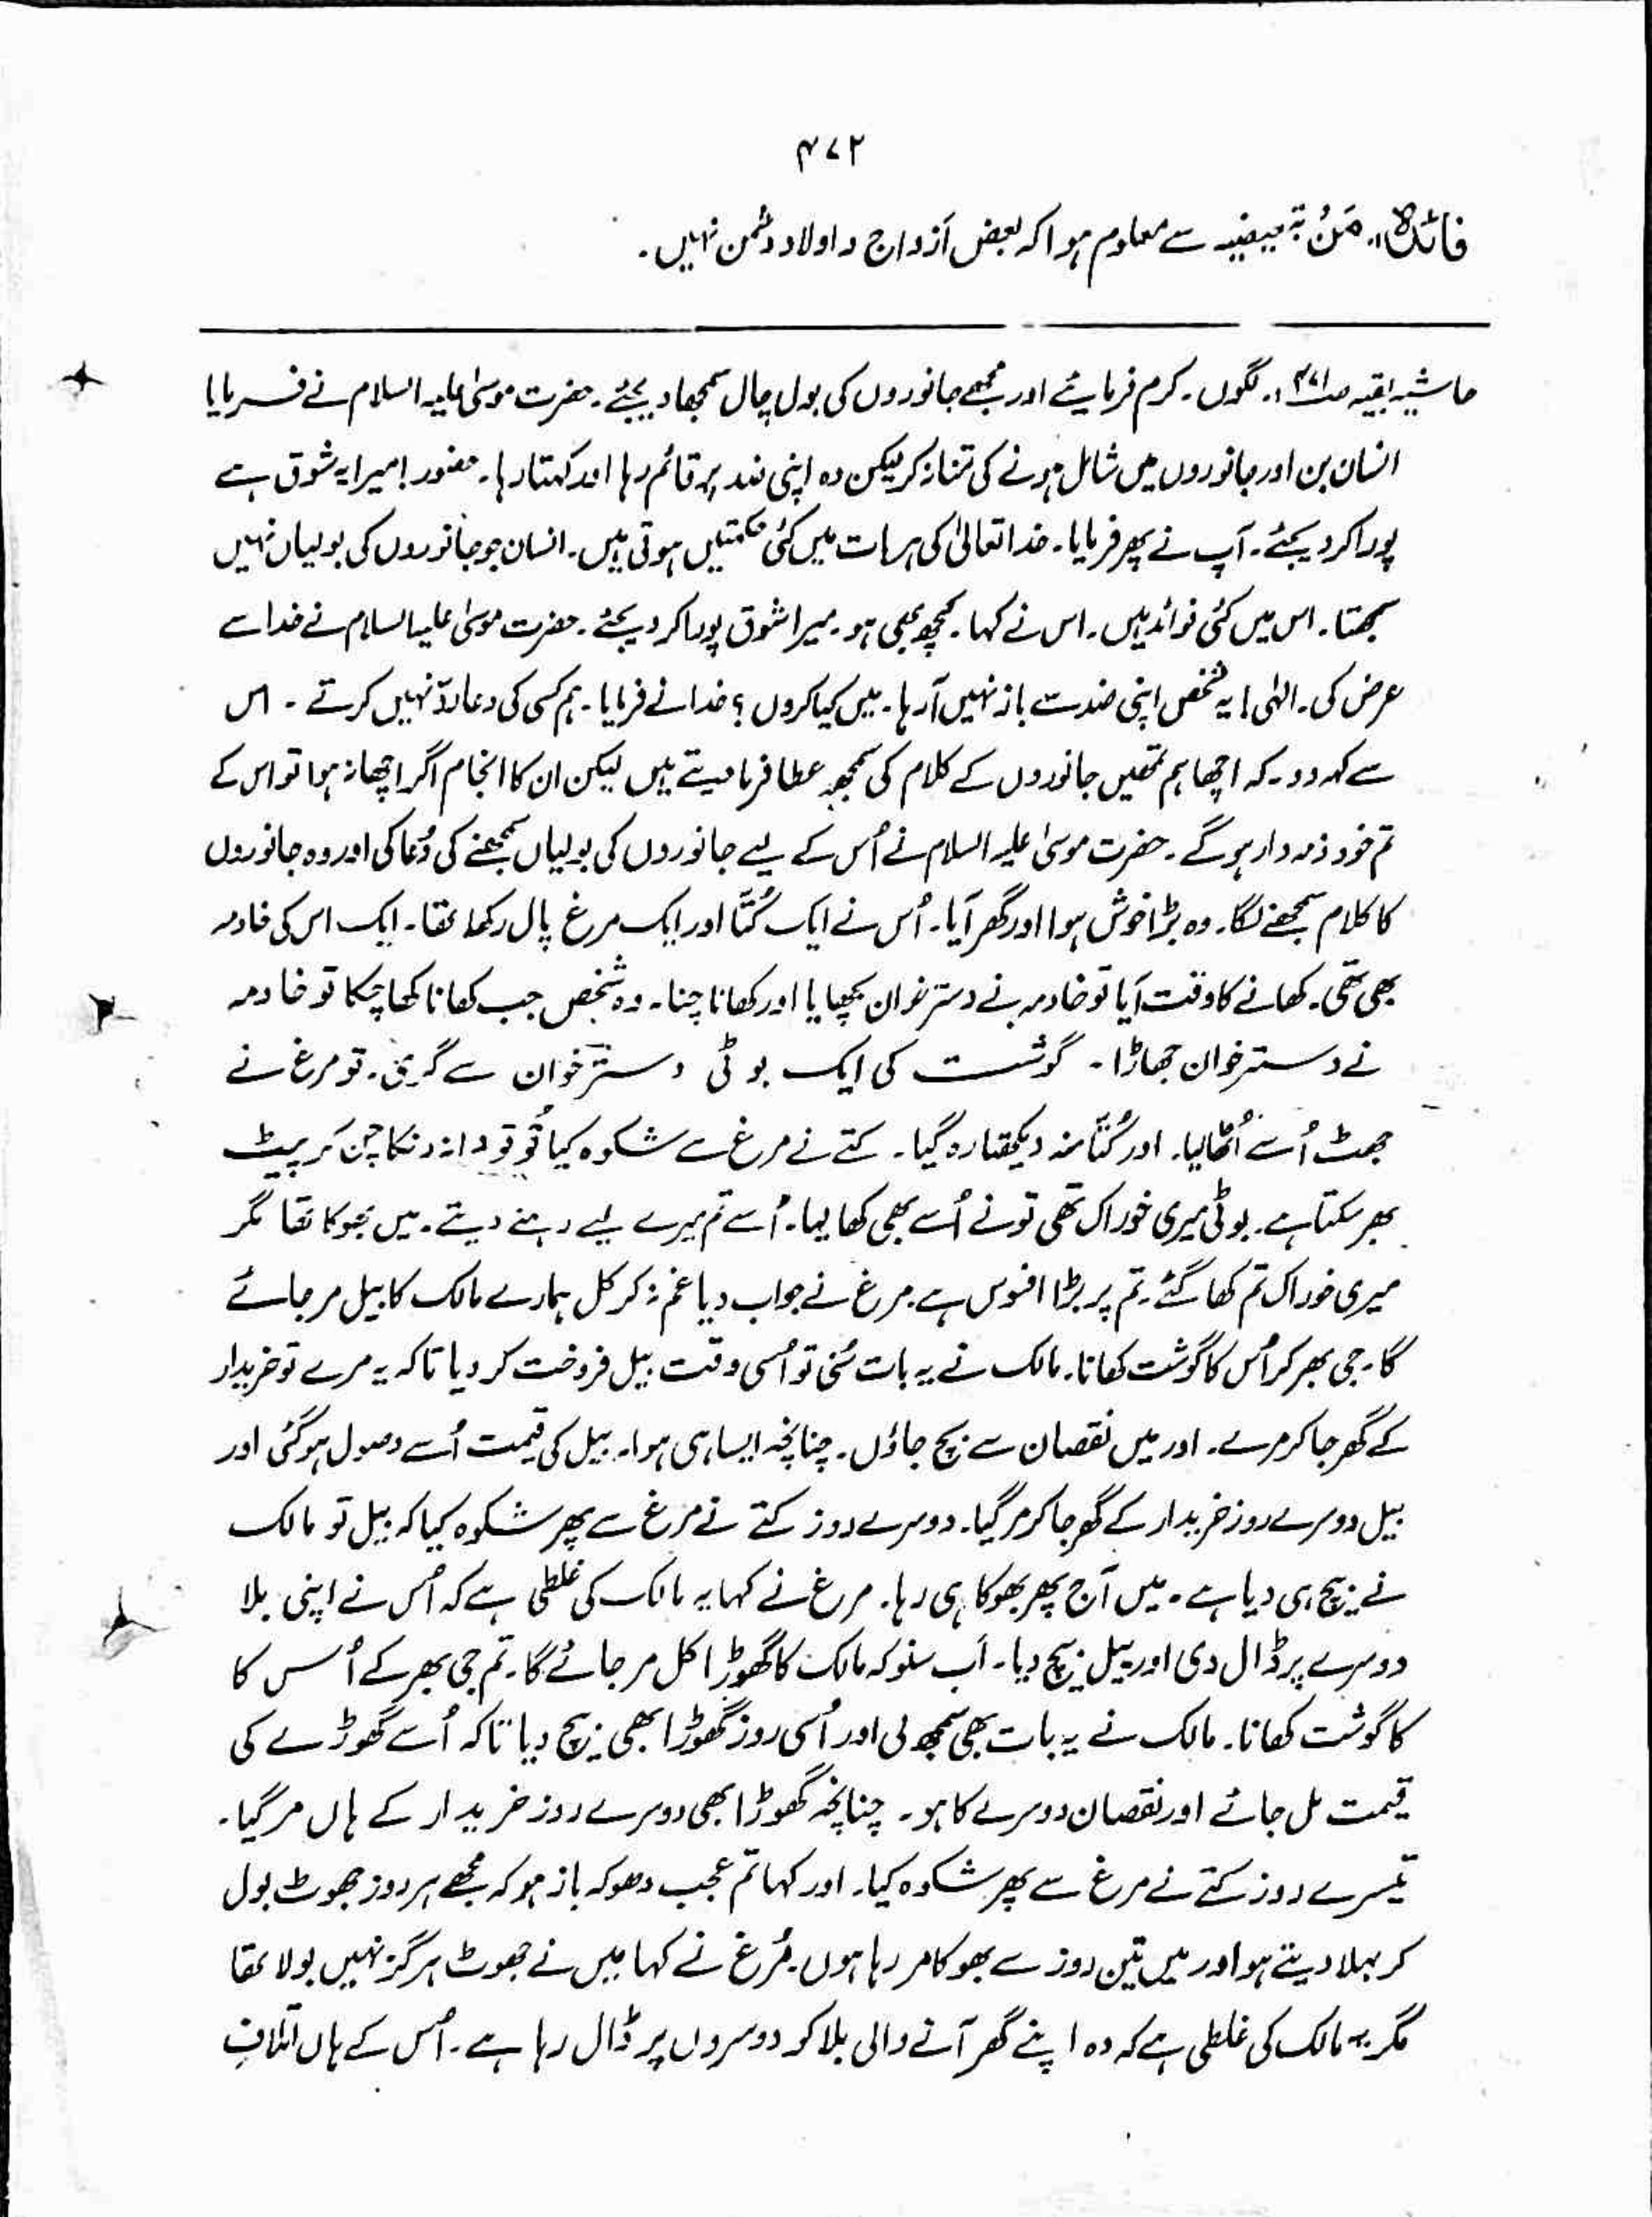 ۴۷۲
فائدہ:۔ مَنْ تبعیضیہ سے معلوم ہوا کہ بعض اَزواج و اولاد دشمن نہیں۔
حاشیہ بقیہ صہ۴۷۱:۔ لگوں۔ کرم فرمایئے اور مجھے جانوروں کی بول چال سمجھا دیجئے۔ حضرت موسیٰ علیہ السلام نے فرمایا
انسان بن اور جانوروں میں شامل ہونے کی تمنا نہ کر لیکن وہ اپنی ضد پر قائم رہا اور کہتا رہا۔ حضور! میرا یہ شوق ہے
پورا کر دیجئے۔ آپ نے پھر فرمایا۔ خدا تعالیٰ کی ہر بات میں کئی حکمتیں ہوتی ہیں۔ انسان جو جانوروں کی بولیاں نہیں
سمجھتا۔ اس میں کئی فوائد ہیں۔ اس نے کہا۔ کچھ بھی ہو۔ میرا شوق پورا کر دیجئے۔ حضرت موسیٰ علیہ السلام نے خدا سے
عرض کی۔ الہٰی! یہ شخص اپنی ضد سے باز نہیں آ رہا۔ میں کیا کروں؟ خدا نے فرمایا۔ ہم کسی کی دعا ردّ نہیں کرتے۔ اس
سے کہہ دو۔ کہ اچھا ہم تمھیں جانوروں کے کلام کی سمجھ عطا فرما دیتے ہیں لیکن ان کا انجام اگر اچھا نہ ہوا تو اس کے
تم خود ذمہ دار ہو گے۔ حضرت موسیٰ علیہ السلام نے اُس کے لیے جانوروں کی بولیاں سمجھنے کی دُعا کی اور وہ جانوروں
کا کلام سمجھنے لگا۔ وہ بڑا خوش ہوا اور گھر آیا۔ اُس نے ایک کُتّا اور ایک مرغ پال رکھا تھا۔ ایک اس کی خادمہ
بھی تھی۔ کھانے کا وقت آیا تو خادمہ نے دسترخوان بچھایا اور کھانا چنا۔ وہ شخص جب کھانا کھا چکا تو خادمہ
نے دسترخوان جھاڑا۔ گوشت کی ایک بوٹی دسترخوان سے گری۔ تو مرغ نے
جھٹ اُسے اُٹھا لیا۔ اور کُتّا منہ دیکھتا رہ گیا۔ کتے نے مرغ سے شکوہ کیا تُو تو دانہ دنکا چن کر پیٹ
بھر سکتا ہے۔ بوٹی میری خوراک تھی تو نے اُسے بھی کھا لیا۔ اُسے تم میرے لیے رہنے دیتے۔ میں بھوکا تھا مگر
میری خوراک تم کھا گئے۔ تم پر بڑا افسوس ہے۔ مرغ نے جواب دیا غم نہ کر کل ہمارے مالک کا بیل مر جائے
گا۔ جی بھر کر اُس کا گوشت کھانا۔ مالک نے یہ بات سُنی تو اُسی وقت بیل فروخت کر دیا تاکہ یہ مرے تو خریدار
کے گھر جا کر مرے۔ اور میں نقصان سے بچ جاؤں۔ چنانچہ ایسا ہی ہوا۔ بیل کی قیمت اُسے وصول ہو گئی اور
بیل دوسرے روز خریدار کے گھر جا کر مر گیا۔ دوسرے روز کتے نے مرغ سے پھر شکوہ کیا کہ بیل تو مالک
نے بیچ ہی دیا ہے۔ میں آج پھر بھوکا ہی رہا۔ مرغ نے کہا یہ مالک کی غلطی ہے کہ اُس نے اپنی بلا
دوسرے پر ڈال دی اور بیل بیچ دیا۔ اَب سنو کہ مالک کا گھوڑا کل مر جائے گا۔ تم جی بھر کے اُس کا
کا گوشت کھانا۔ مالک نے یہ بات بھی سمجھ لی اور اُسی روز گھوڑا بھی بیچ دیا تاکہ اُسے گھوڑے کی
قیمت مل جائے اور نقصان دوسرے کا ہو۔ چنانچہ گھوڑا بھی دوسرے روز خریدار کے ہاں مر گیا۔
تیسرے روز کتے نے مرغ سے پھر شکوہ کیا۔ اور کہا تم عجب دھوکہ باز ہو کہ مجھے ہر روز جھوٹ بول
کر بہلا دیتے ہو اور میں تین روز سے بھوکا مر رہا ہوں۔ مُرغ نے کہا میں نے جھوٹ ہرگز نہیں بولا تھا
مگر یہ مالک کی غلطی ہے کہ وہ اپنے گھر آنے والی بلا کو دوسروں پر ڈال رہا ہے۔ اُس کے ہاں اتلافِ